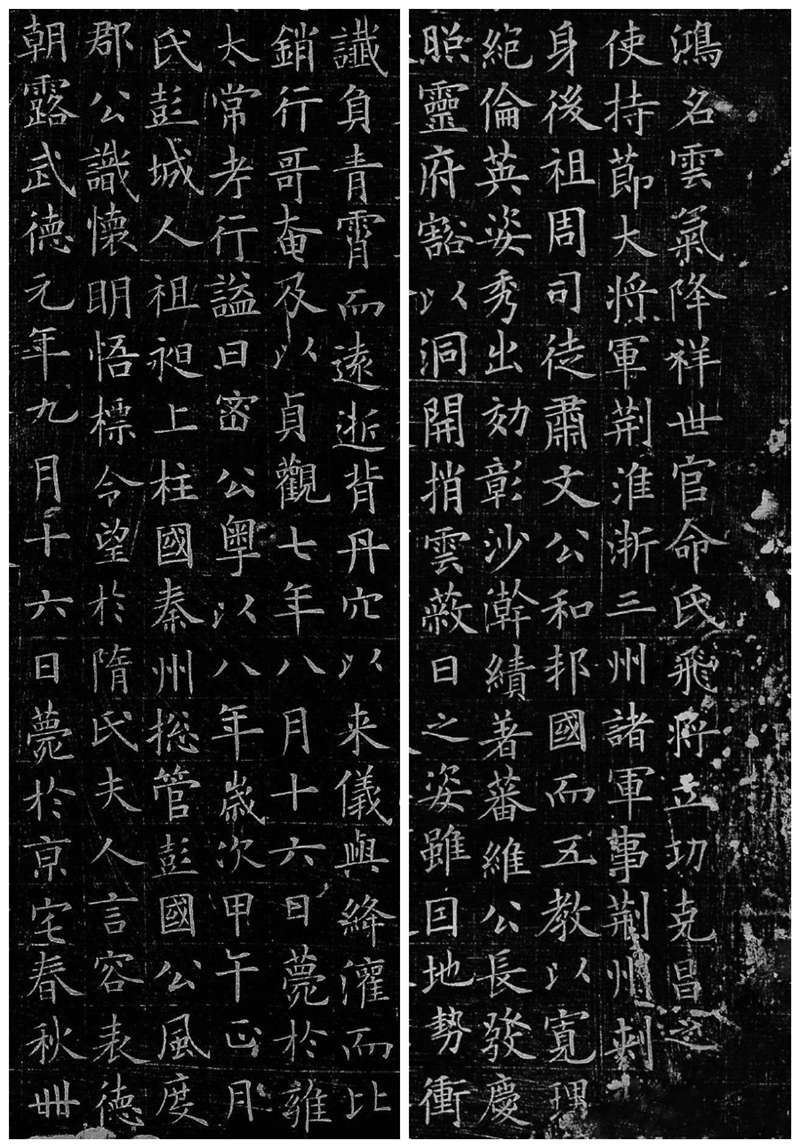 鴻名雲氣降祥世官命氏飛將立功克昌之
使持節大將軍荊淮浙三州諸軍事荊州刺
身後祖周司徒肅文公和邦國而五教以寬理
絕倫英姿秀出効彰沙澣績著蕃維公長發慶
照靈府豁以洞開捎雲蔽日之姿雖因地勢衝
讖負青霄而遠逝背丹穴以来儀與絳灌而比
銷行哥奄及以貞觀七年八月十六日薨於雍
太常考行諡曰密公粵以八年歲次甲午正月
氏彭城人祖昶上柱國秦州揔管彭國公風度
郡公識懷明悟標令望於隋氏夫人言容表德
朝露武德元年九月十六日薨於京宅春秋卌